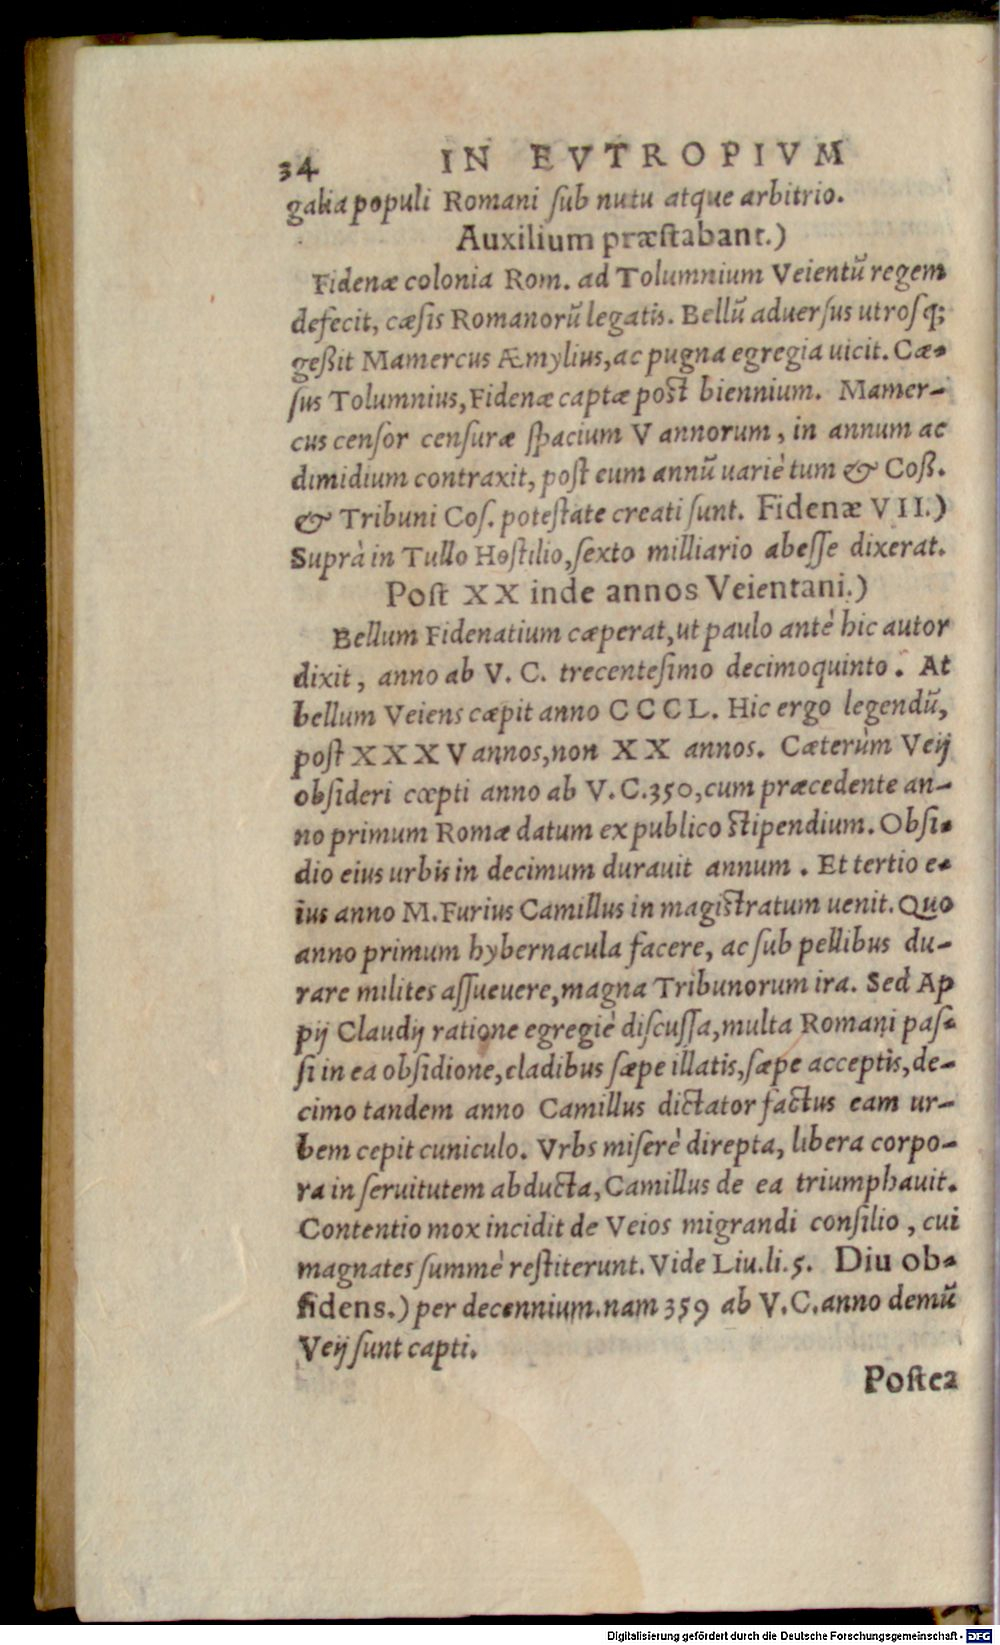 34 IN EVTROPIVM
galia populi Romani ſub nutu atque arbitrio.
Auxilium præſtabant.)
Fidenæ colonia Rom. ad Tolumnium Veientū regem
defecit, cæſis Romanorū legatis. Bellū aduerſus utroſq;
geßit Mamercus Æmylius, ac pugna egregia uicit. Cæ-
ſus Tolumnius, Fidenæ captæ poſt biennium. Mamer-
cus cenſor cenſuræ ſpacium V annorum, in annum ac
dimidium contraxit, poſt eum annū uariè tum & Coß.
& Tribuni Coſ. poteſtate creati ſunt. Fidenæ VII.)
Suprà in Tullo Hoſtilio, ſexto milliario abeſſe dixerat.
Poſt XX inde annos Veientani.)
Bellum Fidenatium cæperat, ut paulo antè hic autor
dixit, anno ab V. C. trecenteſimo decimoquinto. At
bellum Veiens cæpit anno CCCL. Hic ergo legendū,
poſt XXXV annos, non XX annos. Cæterùm Veij
obſideri cœpti anno ab V.C.350, cum præcedente an-
no primum Romæ datum ex publico ſtipendium. Obſi-
dio eius urbis in decimum durauit annum. Et tertio e-
ius anno M. Furius Camillus in magiſtratum uenit. Quo
anno primum hybernacula facere, ac ſub pellibus du-
rare milites aſſueuere, magna Tribunorum ira. Sed Ap
pij Claudij ratione egregiè diſcuſſa, multa Romani paſ-
ſi in ea obſidione, cladibus ſæpe illatis, ſæpe acceptis, de-
cimo tandem anno Camillus dictator factus eam ur-
bem cepit cuniculo. Vrbs miſerè direpta, libera corpo-
ra in ſeruitutem abducta, Camillus de ea triumphauit.
Contentio mox incidit de Veios migrandi conſilio, cui
magnates ſummè reſtiterunt. Vide Liu. li. 5. Diu ob-
ſidens.) per decennium. nam 359 ab V.C. anno demū
Veij ſunt capti.
Poſtea
Digitalisierung gefördert durch die Deutsche Forschungsgemeinschaft - DFG